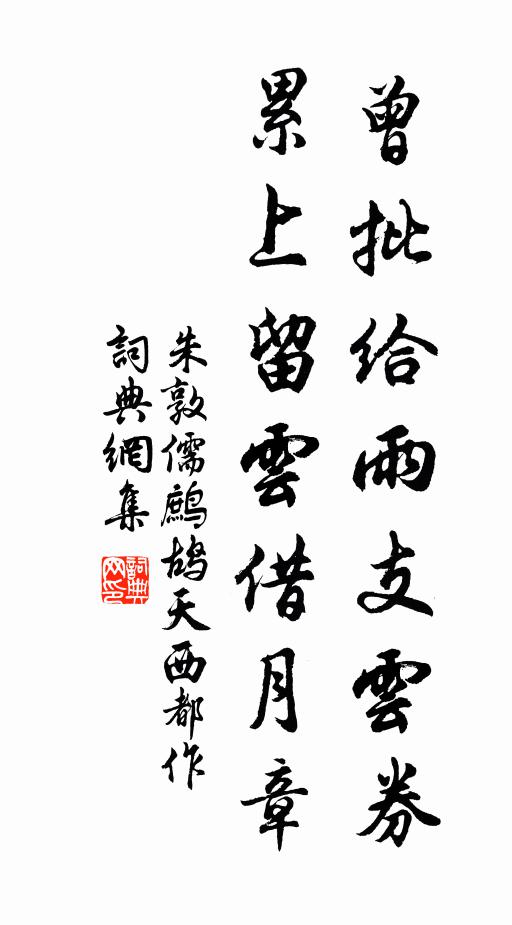 曾批給雨支雲券
累上留雲借月章
朱敦儒鷓鴣天西都作
詞典網集
詞典网印